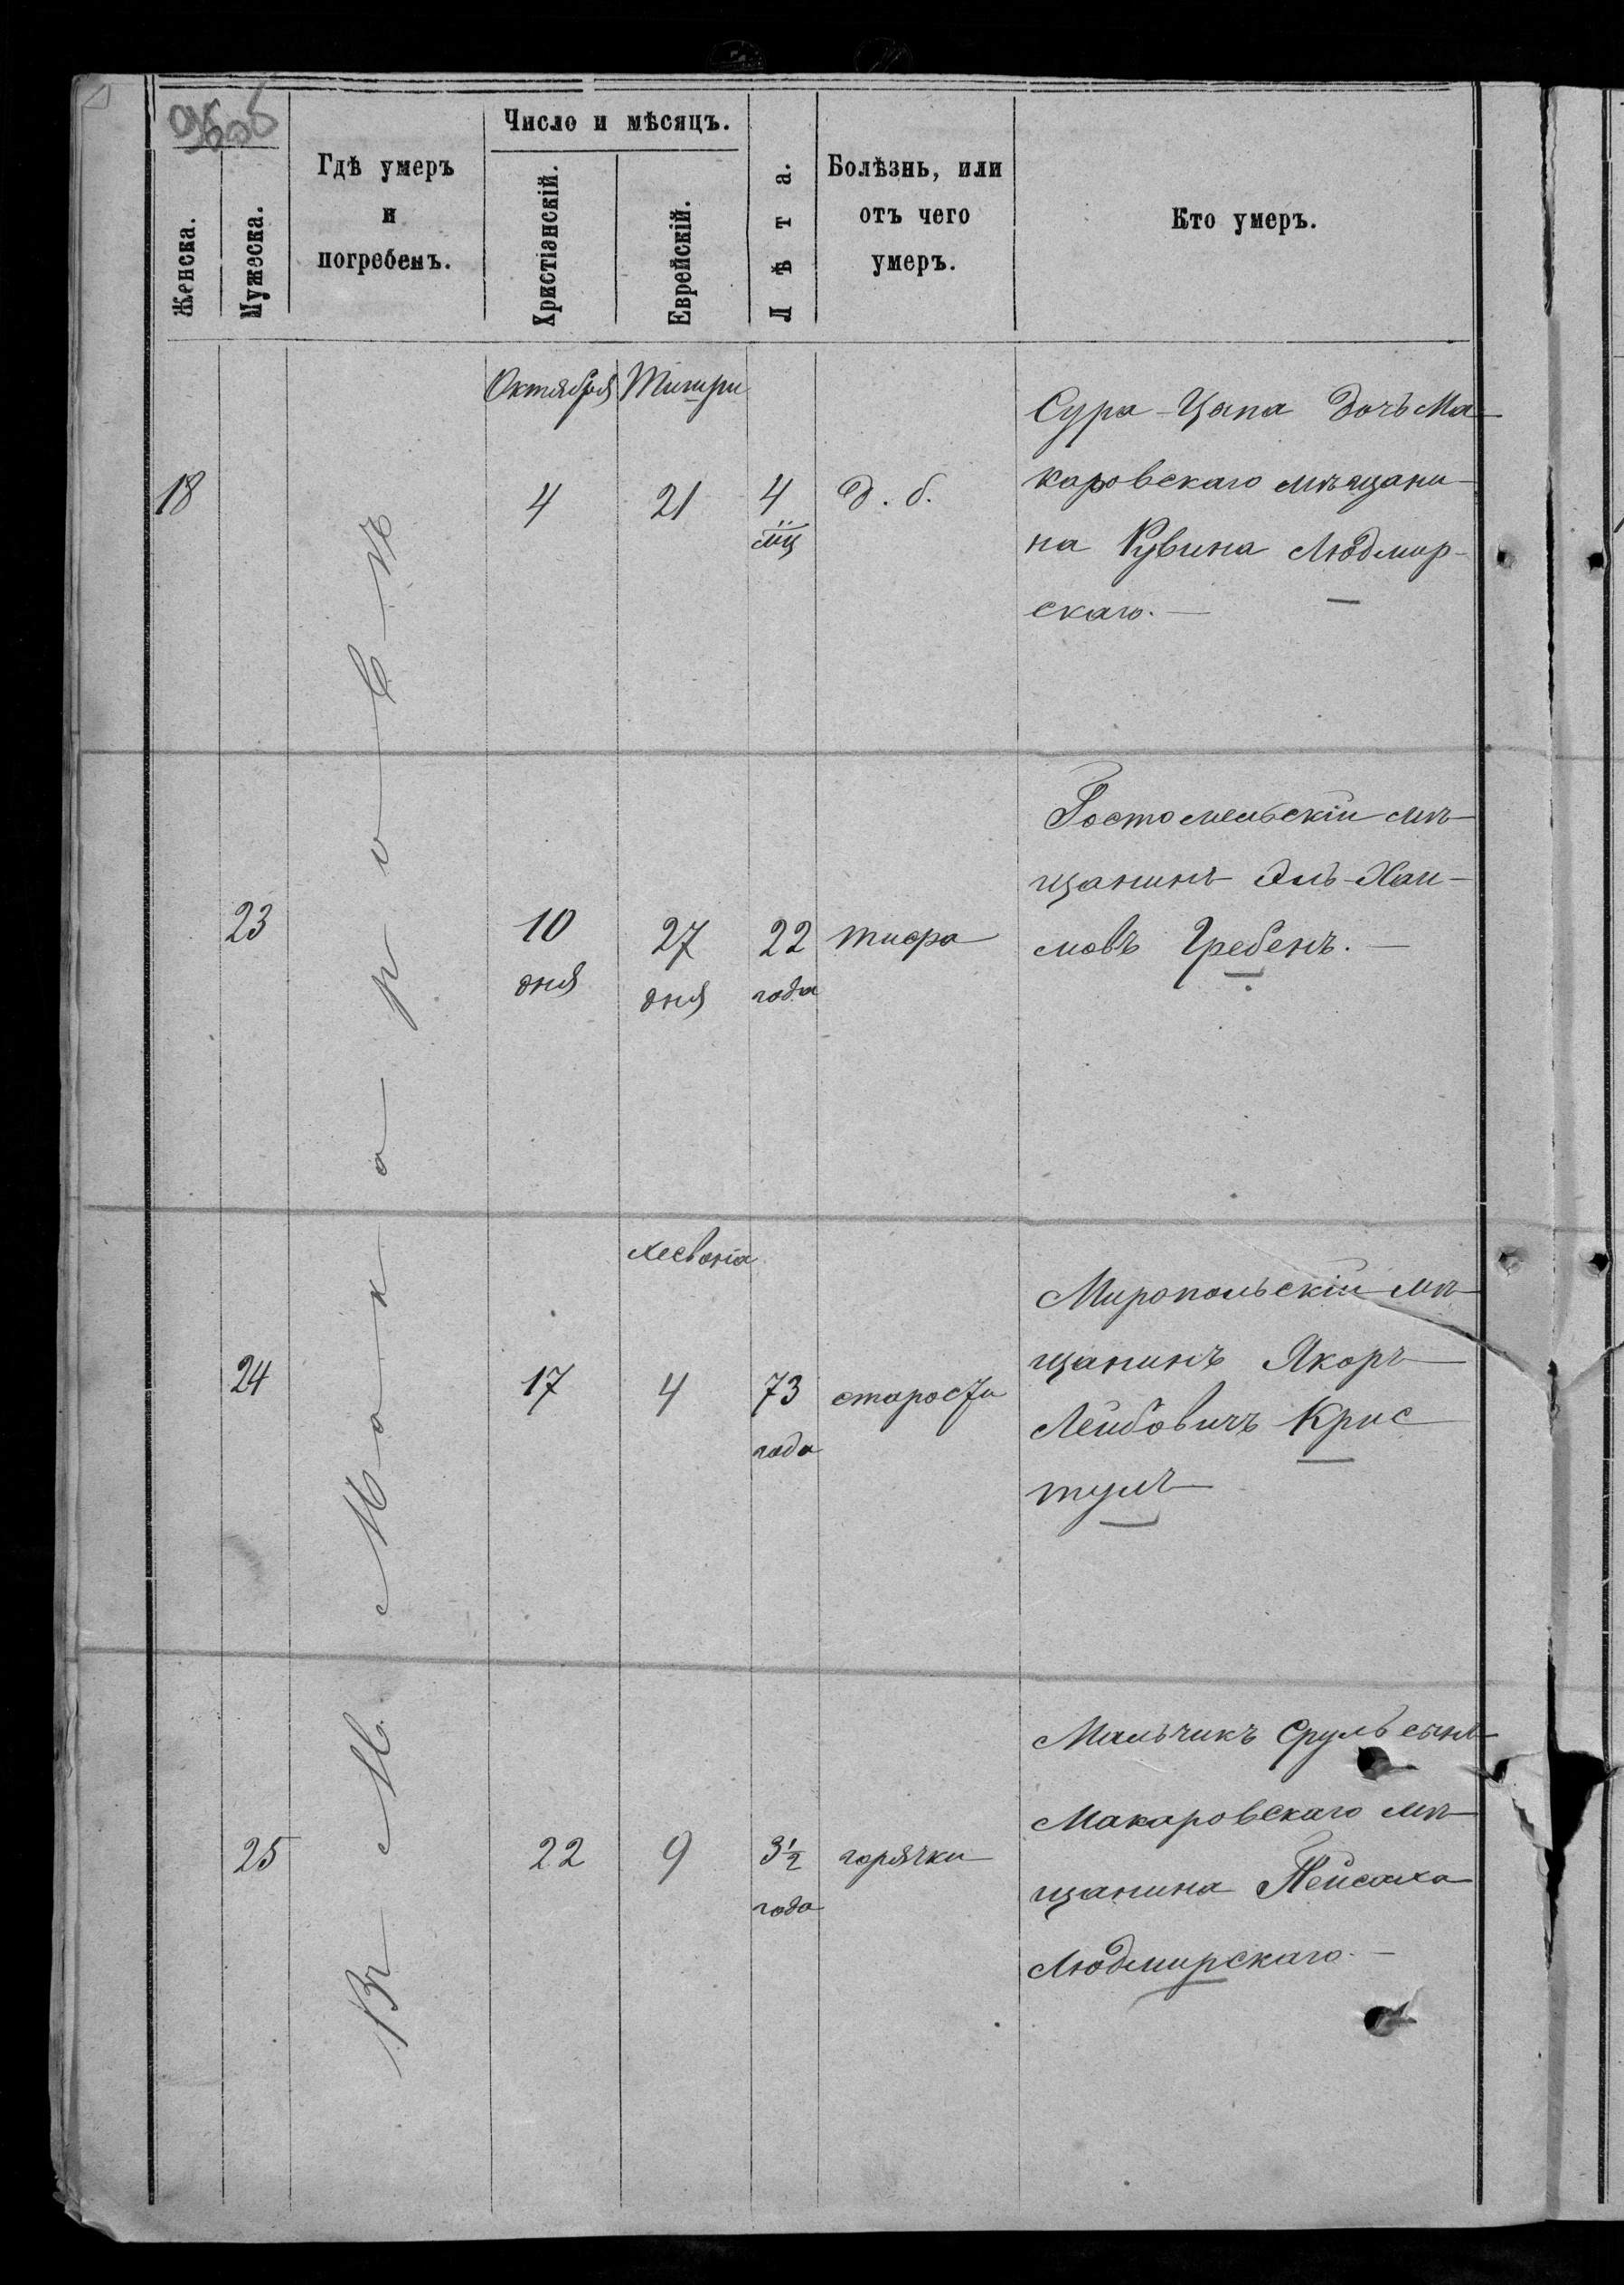 96об
Женска.
Мужеска.
Гдѣ умеръ
и
погребенъ.
Число и мѣсяцъ.
Христіанскій.
Еврейскій.
Лѣта.
Болѣзнь, или
отъ чего
умеръ.
Кто умеръ.
Въ М. Макаровѣ
Октября Тишри
18 4 21 4 д. б.
мц
Сура-Ципа дочь Ма-
каровскаго мѣщани-
на Рувина Людмир-
скаго.
23 10 27 22 тифа
дня дня года
Гостомельскій мѣ-
щанинъ Эль Хаи-
мовъ Гребень.
Хесвонія
24 17 4 73 старости
года
Миропольскій мѣ-
щанинъ Якоръ
Лейбовичъ Крис
тулъ
25 22 9 3½ горячки
года
Мальчикъ Сруль сынъ
Макаровскаго мѣ-
щанина Пейсаха
Людмирскаго.